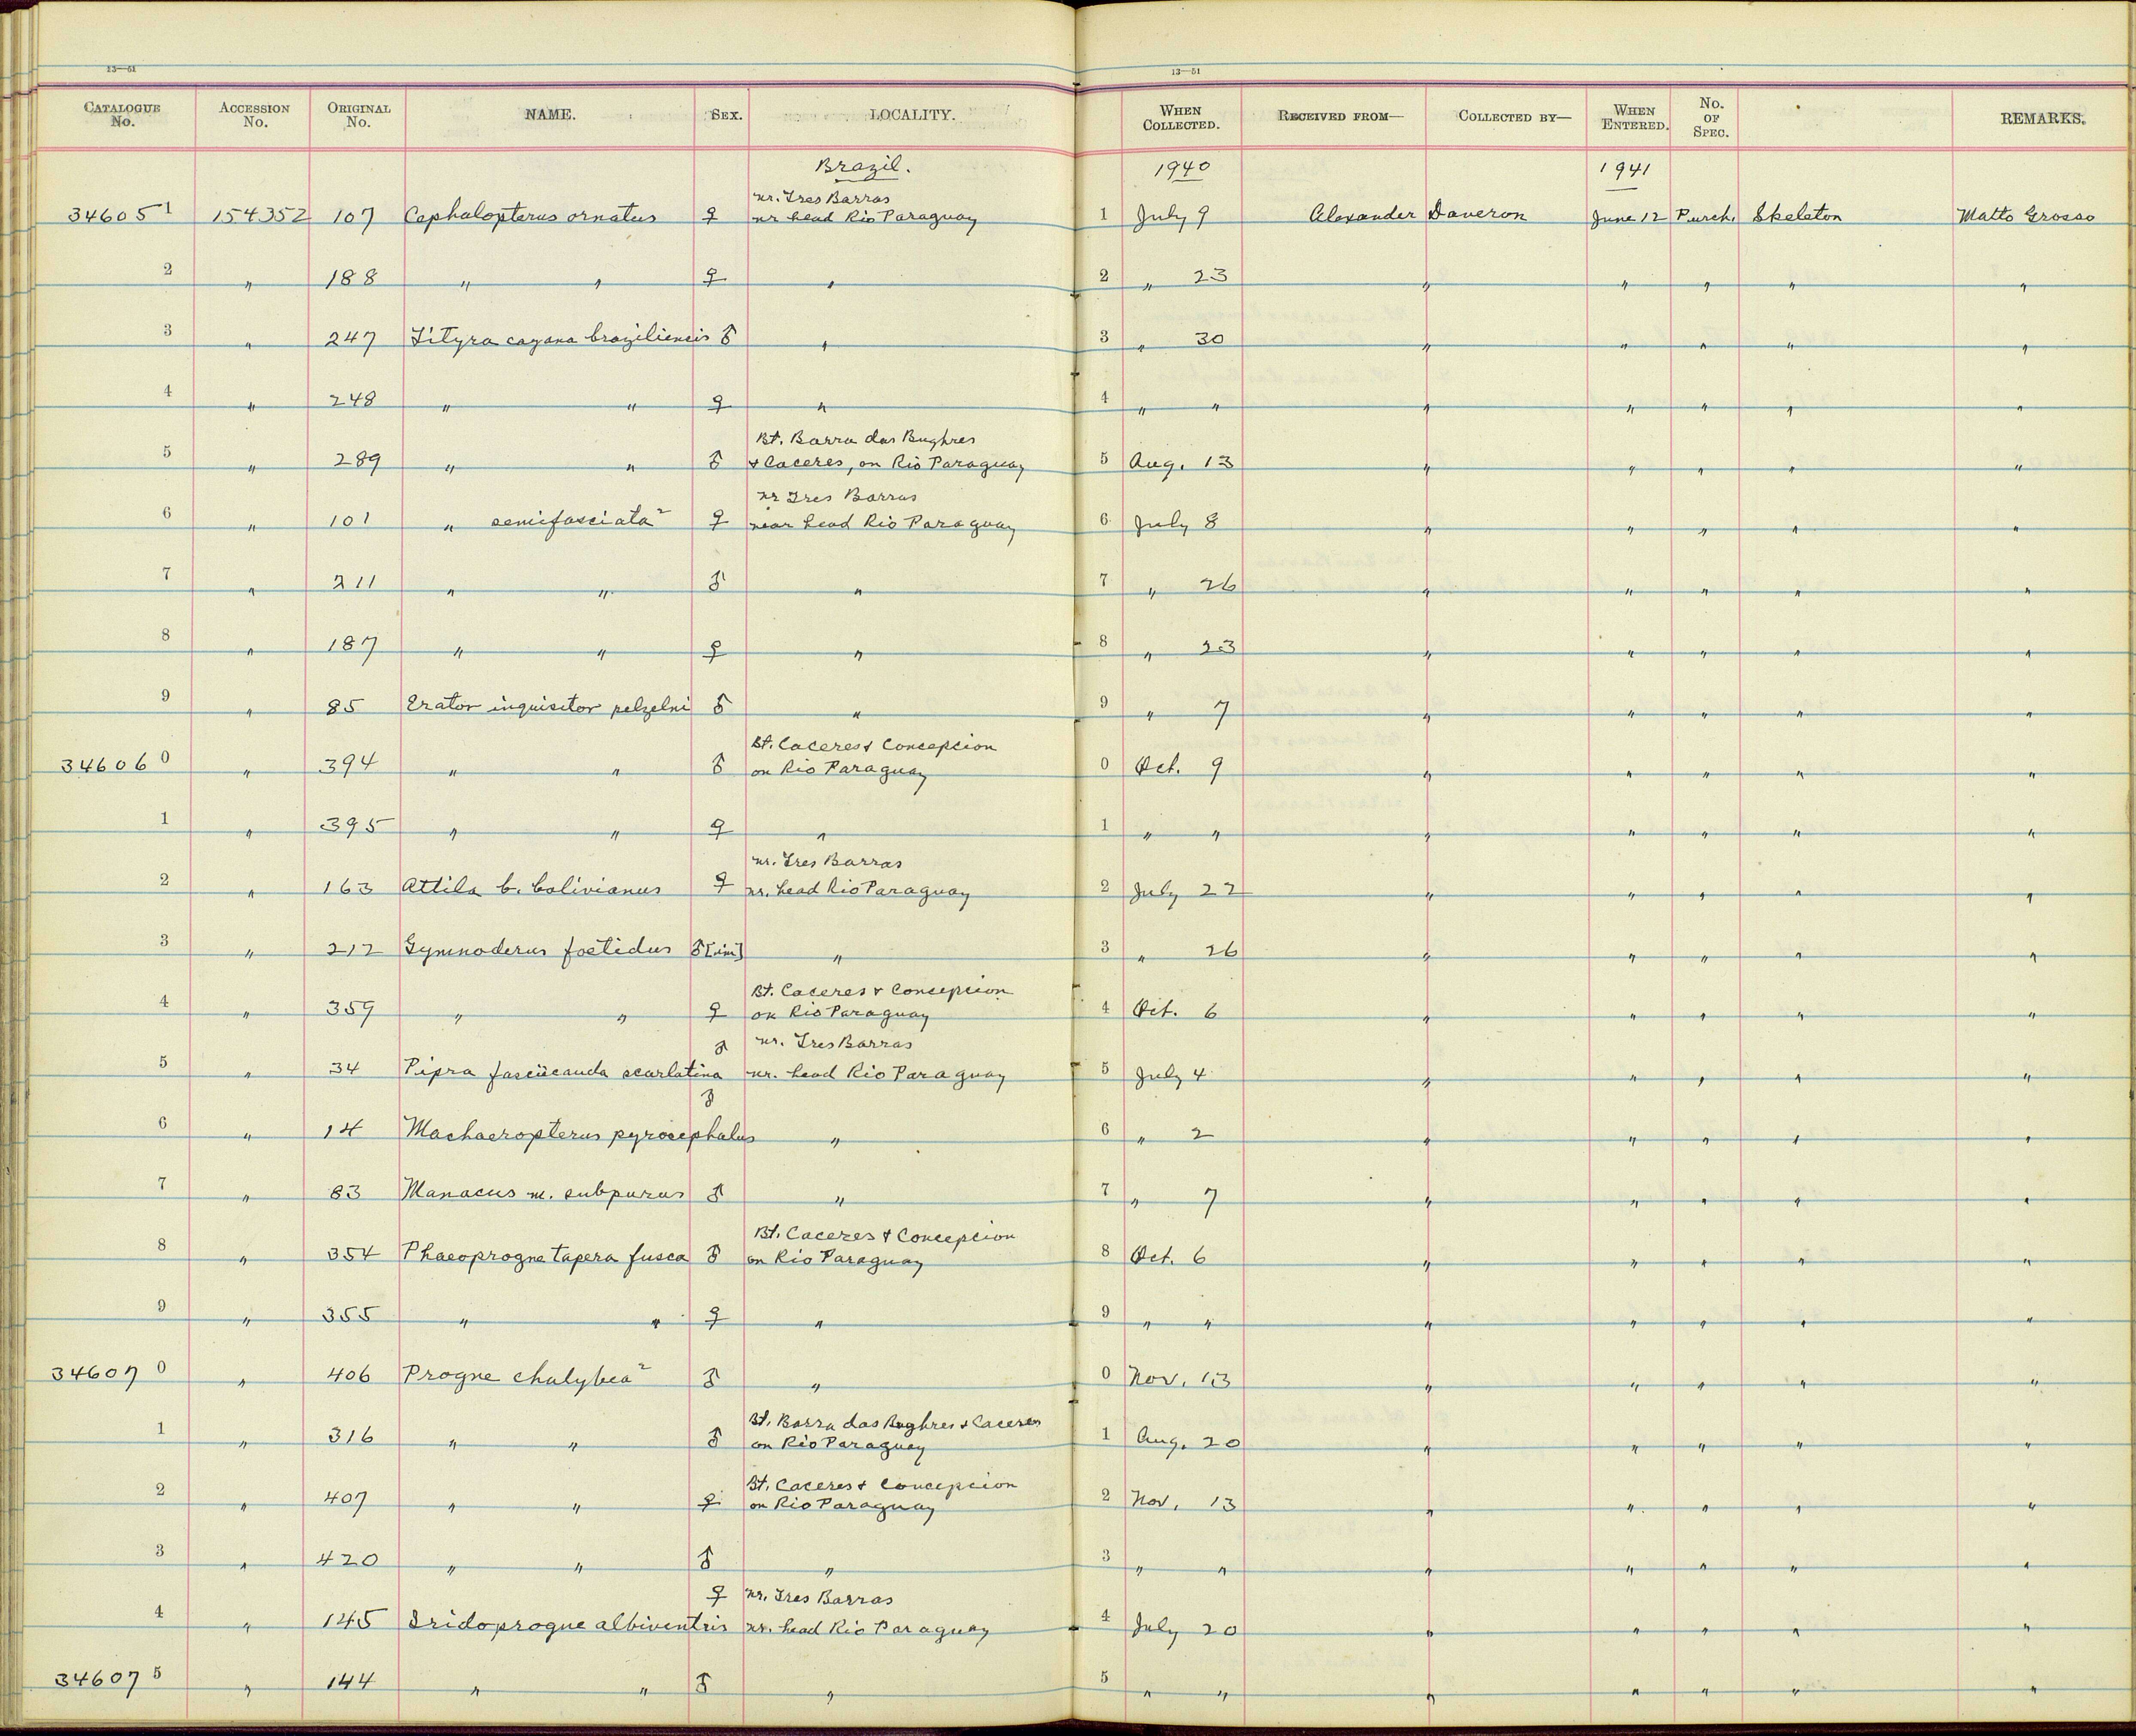 13—51 13—51
CATALOGUE No. ACCESSION No. ORIGINAL No. NAME. SEX. LOCALITY. WHEN COLLECTED. RECEIVED FROM— COLLECTED BY— WHEN ENTERED. No. OF SPEC. REMARKS.
Brazil. 1940 1941
nr. Tres Barras
34605 1 154352 107 Cephalopterus ornatus ♀ nr head Rio Paraguay 1 July 9 Alexander Daveron June 12 Purch. Skeleton Matto Grosso
2 " 188 " " ♀ " 2 " 23 " " " " "
3 " 247 Tityra cayana braziliensis ♂ " 3 " 30 " " " " "
4 " 248 " " ♀ " 4 " " " " " " "
Bt. Barra das Bughres
5 " 289 " " ♂ & Caceres, on Rio Paraguay 5 Aug. 13 " " " " "
nr Tres Barras
6 " 101 " semifasciata² ♀ near head Rio Paraguay 6 July 8 " " " " "
7 " 211 " " ♂ " 7 " 26 " " " " "
8 " 187 " " ♀ " 8 " 23 " " " " "
9 " 85 Erator inquisitor pelzelni ♂ " 9 " 7 " " " " "
Bt. Caceres & Concepcion
34606 0 " 394 " " ♂ on Rio Paraguay 0 Oct. 9 " " " " "
1 " 395 " " ♀ " 1 " " " " " " "
nr. Tres Barras
2 " 163 Attila b. bolivianus ♀ nr. head Rio Paraguay 2 July 22 " " " " "
3 " 212 Gymnoderus foetidus ♂ [im] " 3 " 26 " " " " "
Bt. Caceres & Concepcion
4 " 359 " " ♀ on Rio Paraguay 4 Oct. 6 " " " " "
♂ nr. Tres Barras
5 " 34 Pipra fasciicauda scarlatina nr. head Rio Paraguay 5 July 4 " " " " "
♂
6 " 14 Machaeropterus pyrocephalus " 6 " 2 " " " " "
7 " 83 Manacus m. subpurus ♂ " 7 " 7 " " " " "
Bt. Caceres & Concepcion
8 " 354 Phaeoprogne tapera fusca ♂ on Rio Paraguay 8 Oct. 6 " " " " "
9 " 355 " " ♀ " 9 " " " " " " "
34607 0 " 406 Progne chalybea² ♂ " 0 Nov. 13 " " " " "
Bt. Barra das Bughres & Caceres
1 " 316 " " ♂ on Rio Paraguay 1 Aug. 20 " " " " "
Bt. Caceres & Concepcion
2 " 407 " " ♀ on Rio Paraguay 2 Nov. 13 " " " " "
3 " 420 " " ♂ " 3 " " " " " " "
♀ nr. Tres Barras
4 " 145 Iridoprogne albiventris nr. head Rio Paraguay 4 July 20 " " " " "
34607 5 " 144 " " ♂ " 5 " " " " " " "